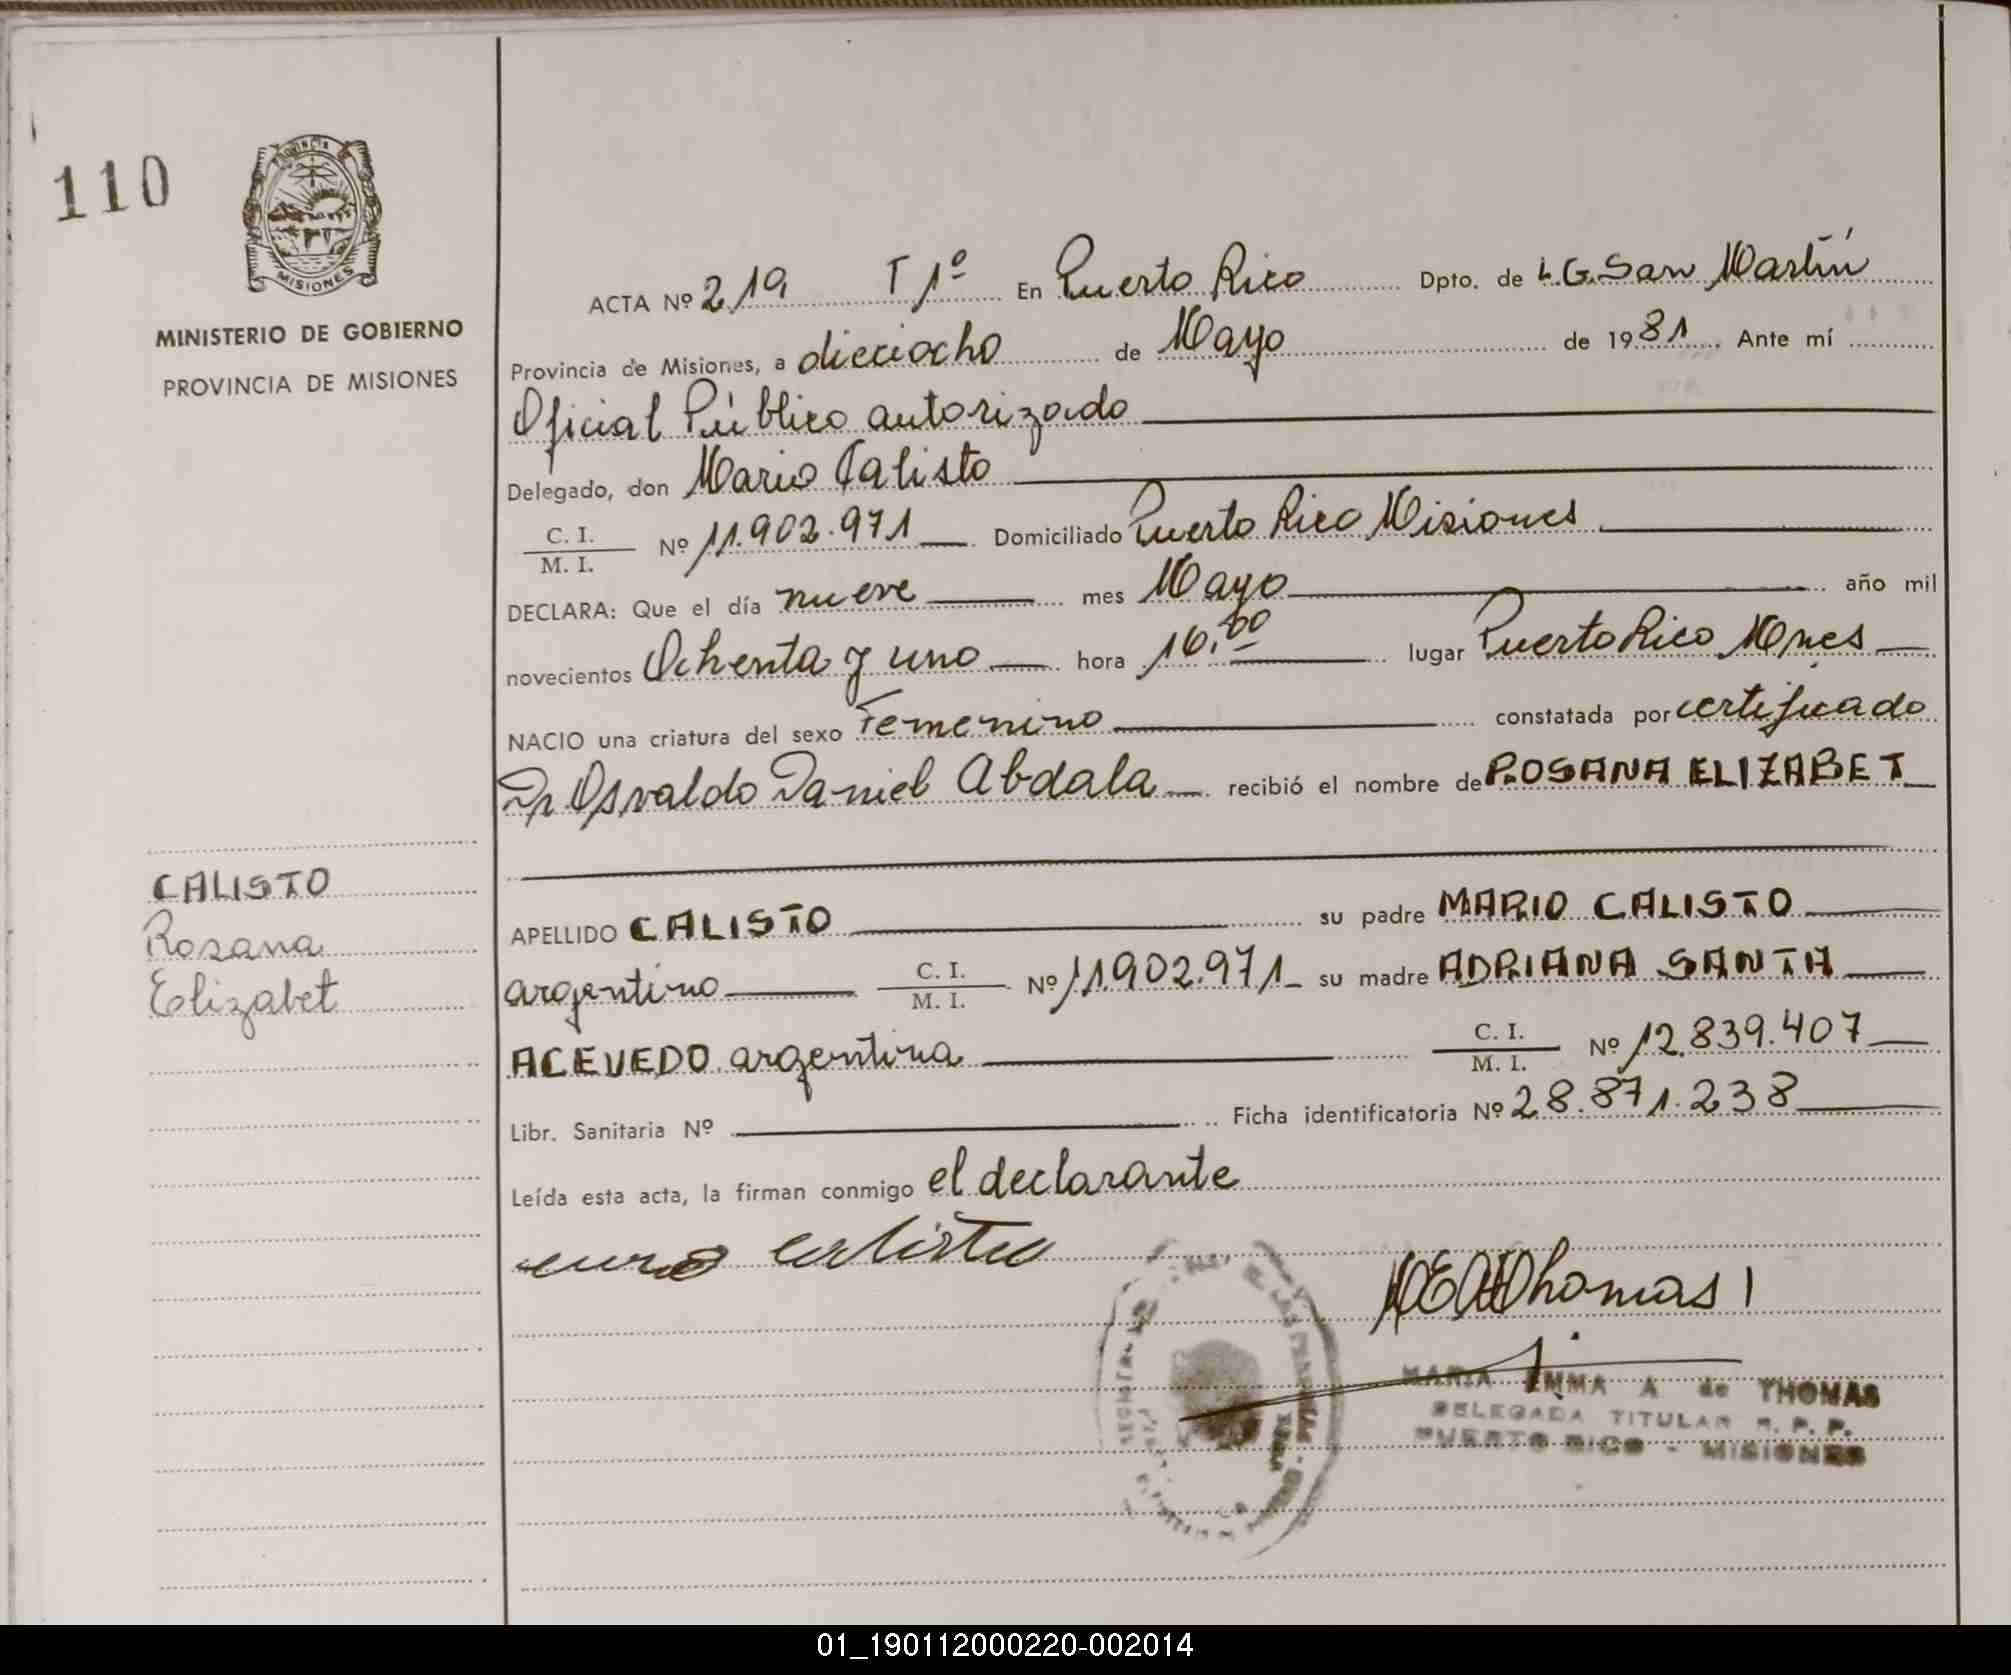 110
PROVINCIA DE
MISIONES
MINISTERIO DE GOBIERNO
PROVINCIA DE MISIONES
CALISTO
Rosana
Elizabet
ACTA Nº 219 T 1º En Puerto Rico Dpto. de L.G. San Martín
Provincia de Misiones, a dieciocho de Mayo de 1981 Ante mí
Oficial Público autorizado
Delegado, don Mario Calisto
C. I.
M. I. Nº 11.902.971 Domiciliado Puerto Rico Misiones
DECLARA: Que el día nueve mes Mayo año mil
novecientos Ochenta y uno hora 16.00 lugar Puerto Rico Mnes
NACIO una criatura del sexo Femenino constatada por certificado
Dr Osvaldo Daniel Abdala recibió el nombre de ROSANA ELIZABET
APELLIDO CALISTO su padre MARIO CALISTO
argentino C. I.
M. I. Nº 11.902.971 su madre ADRIANA SANTA
ACEVEDO argentina C. I.
M. I. Nº 12.839.407
Libr. Sanitaria Nº Ficha identificatoria Nº 28.871.238
Leída esta acta, la firman conmigo el declarante
Thomas
MARIA EMMA A de THOMAS
DELEGADA TITULAR R. P. P.
PUERTO RICO - MISIONES
01_190112000220-002014